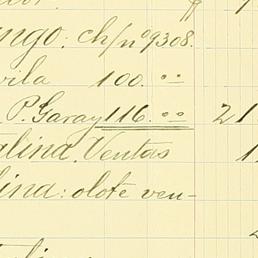 ango: ch/nº 9308.
vila 100. "
P. Garay 116. " 21
alina. Ventas 1
lina: olote ven-